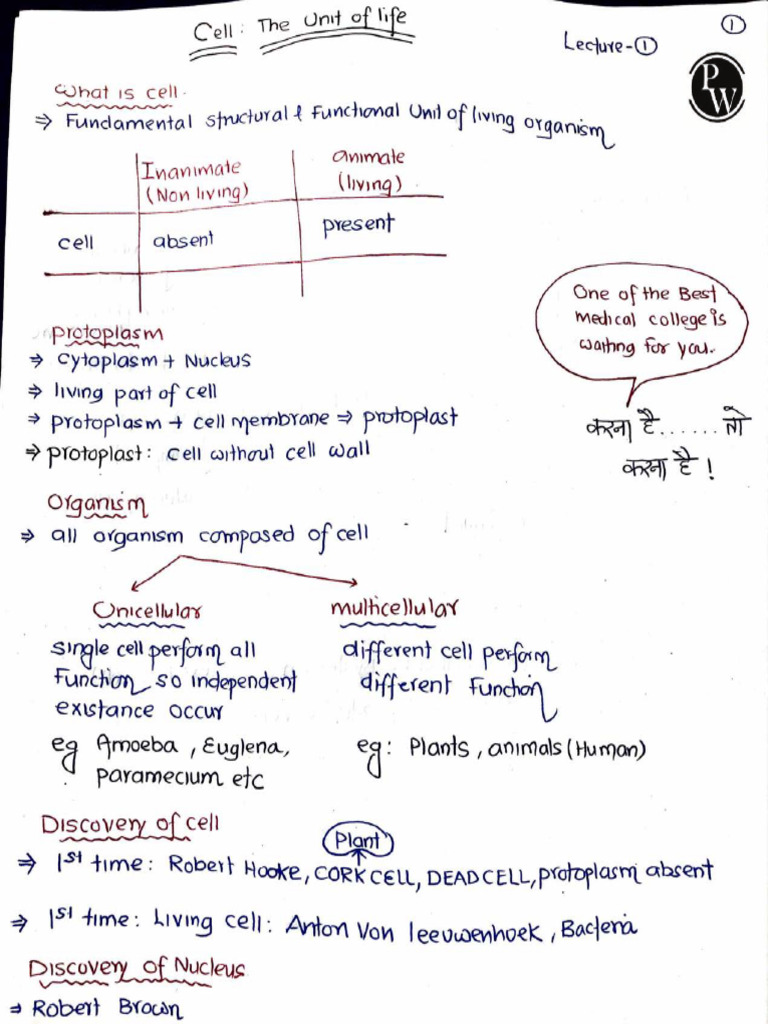 Cell: The Unit of life
1
Lecture-1
PW
What is cell.
⇒ Fundamental structural & Functional Unit of living organism
Inanimate (Non living)
animate (living)
cell absent present
One of the Best
medical college is
waiting for you.
करना है...... तो
करना है !
Protoplasm
⇒ cytoplasm + Nucleus
⇒ living part of cell
⇒ protoplasm + cell membrane ⇒ protoplast
⇒ protoplast: cell without cell wall
Organism
⇒ all organism composed of cell
Unicellular
single cell perform all
Function so independent
existance occur
eg Amoeba, Euglena,
paramecium etc
multicellular
different cell perform
different Function
eg: Plants, animals (Human)
Discovery of cell
Plant
⇒ 1st time: Robert Hooke, CORK CELL, DEAD CELL, protoplasm absent
⇒ 1st time: Living cell: Anton Von leeuwenhoek, Bacteria
Discovery of Nucleus
⇒ Robert Brown